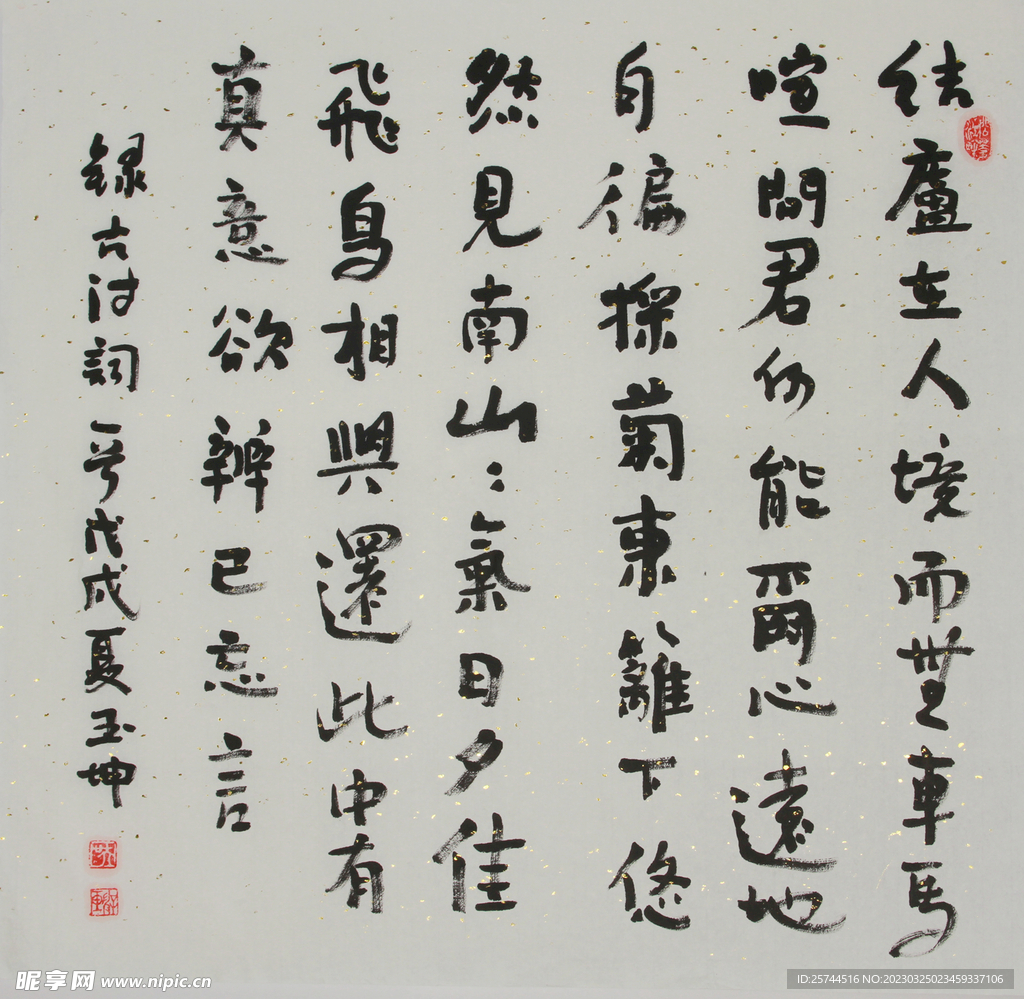 结廬在人境而無車馬
喧問君何能爾心遠地
自徧採菊東籬下悠
然見南山々氣日夕佳
飛鳥相與還此中有
真意欲辨已忘言
録古诗詞一首戊戌夏玉坤
昵享网 www.nipic.cn
ID:25744516 NO:20230325023459337106